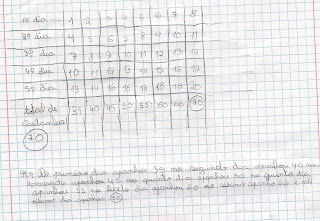 1º dia 1 2 3 4 5 6 7 8
2º dia 4 5 6 7 8 9 10 11
3º dia 7 8 9 10 11 12 13
4º dia 10 11 12 13 14 15 16
5º dia 13 14 15 16 17 18 19 20
total de 35 40 45 50 55 60 70
70
R: No primeiro dia apanhou 35 no segundo dia apanhou 40 no
terceiro dia apanhou 45 no quarto dia apanhou 50 no quinto dia
apanhou 55 no sexto dia apanhou 60 no sétimo apanhou e no
oitavo apanhou 70